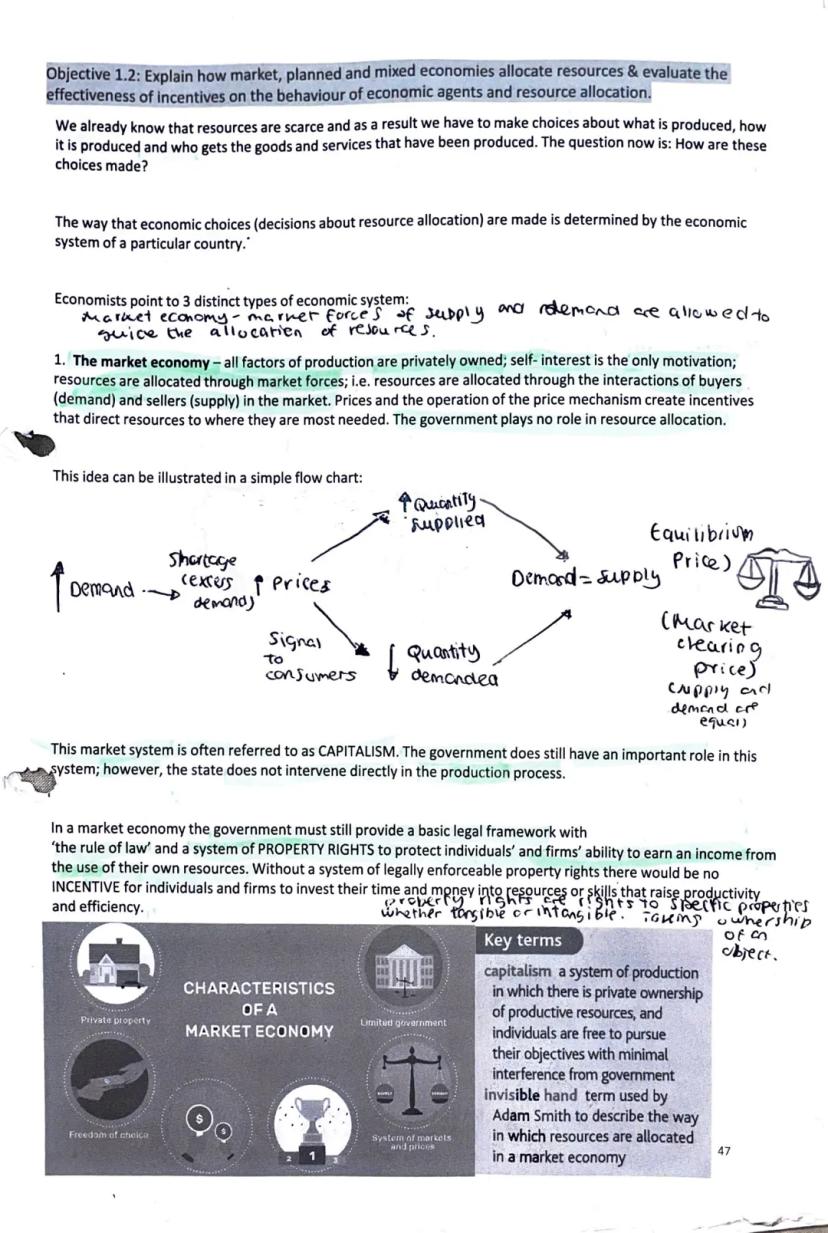 Objective 1.2: Explain how market, planned and mixed economies allocate resources & evaluate the
effectiveness of incentives on the behaviour of economic agents and resource allocation.
We already know that resources are scarce and as a result we have to make choices about what is produced, how
it is produced and who gets the goods and services that have been produced. The question now is: How are these
choices made?
The way that economic choices (decisions about resource allocation) are made is determined by the economic
system of a particular country.
Economists point to 3 distinct types of economic system:
Market economy - market forces of supply and demand are allowed to
guide the allocation of resources.
1. The market economy – all factors of production are privately owned; self- interest is the only motivation;
resources are allocated through market forces; i.e. resources are allocated through the interactions of buyers
(demand) and sellers (supply) in the market. Prices and the operation of the price mechanism create incentives
that direct resources to where they are most needed. The government plays no role in resource allocation.
This idea can be illustrated in a simple flow chart:
↑ Demand →
Shortage
(excess
demand)
↑ Prices
Signal
to
consumers
↑ Quantity
supplied
↓ Quantity
demanded
Demand = supply
Equilibrium
Price)
(Market
clearing
price)
(supply and
demand are
equal)
This market system is often referred to as CAPITALISM. The government does still have an important role in this
system; however, the state does not intervene directly in the production process.
In a market economy the government must still provide a basic legal framework with
'the rule of law' and a system of PROPERTY RIGHTS to protect individuals' and firms' ability to earn an income from
the use of their own resources. Without a system of legally enforceable property rights there would be no
INCENTIVE for individuals and firms to invest their time and money into resources or skills that raise productivity
and efficiency.
property rights are rights to specific properties
whether tangible or intangible. Taking ownership
of an
object.
CHARACTERISTICS
OF A
MARKET ECONOMY
Private property
Limited government
Freedom of choice
$
$
2 1 3
System of markets
and prices
Key terms
capitalism a system of production
in which there is private ownership
of productive resources, and
individuals are free to pursue
their objectives with minimal
interference from government
invisible hand term used by
Adam Smith to describe the way
in which resources are allocated
in a market economy
47